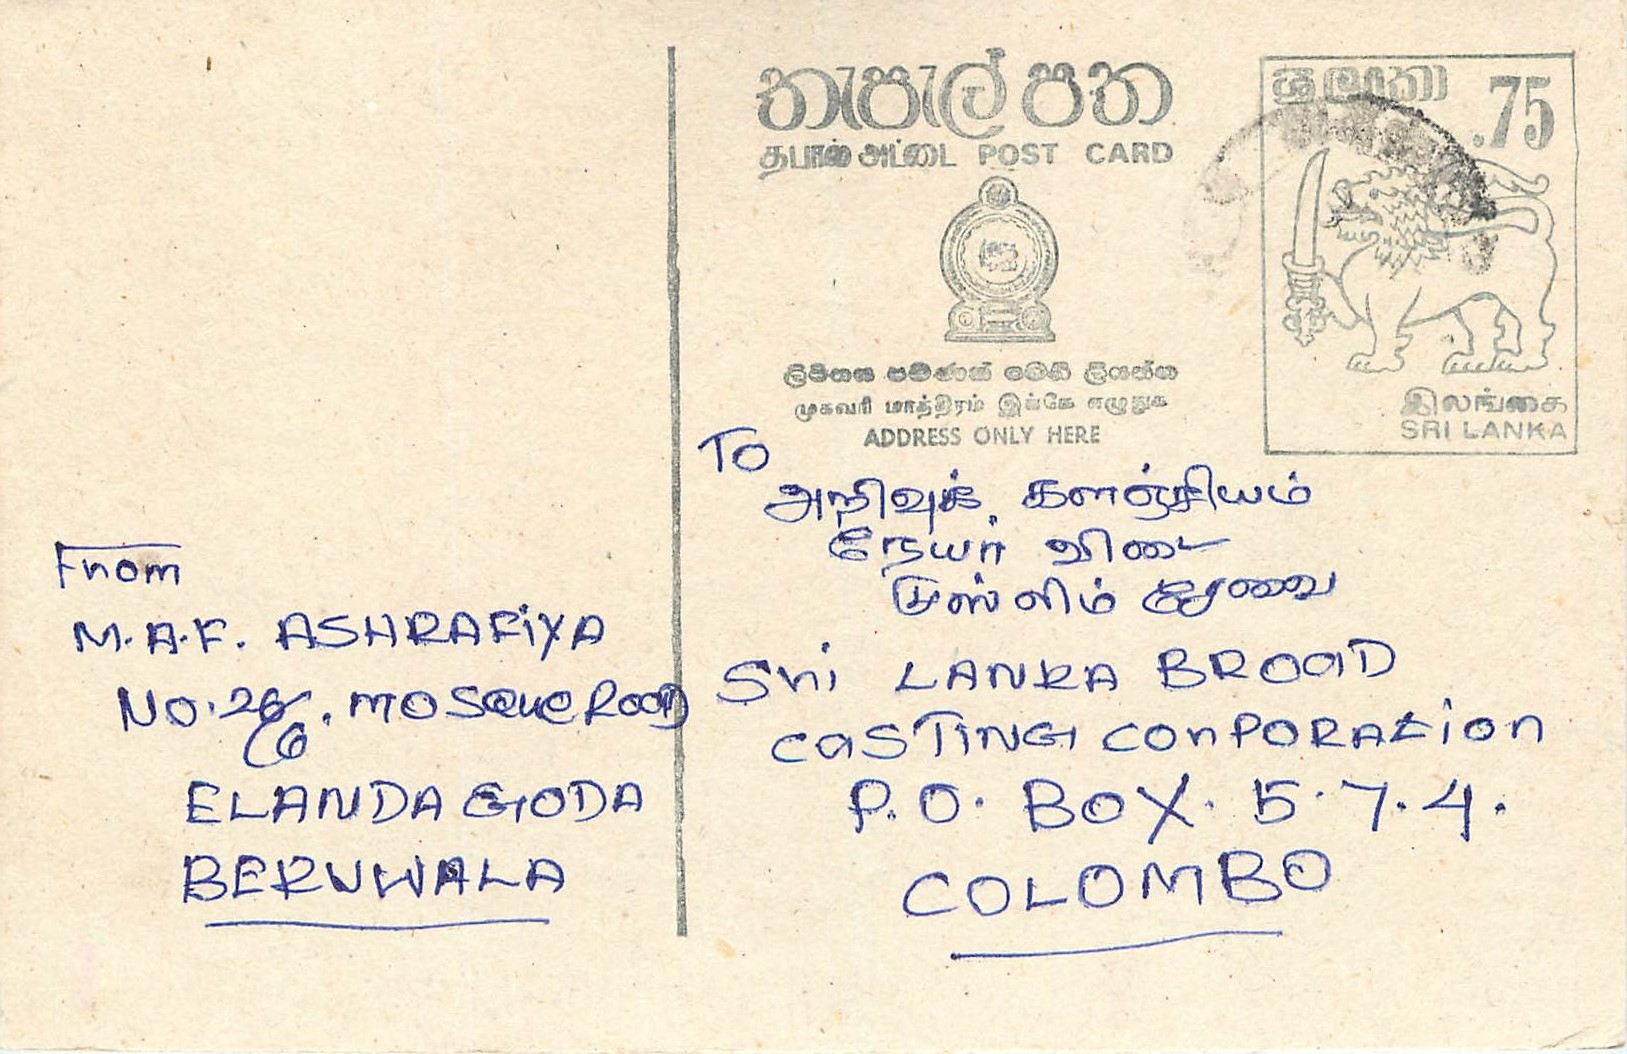 තැපැල් පත
தபால் அட்டை POST CARD
ශ්‍රී ලංකා .75
ලිපිනය පමණක් මෙහි ලියන්න
முகவரி மாத்திரம் இங்கே எழுதுக
ADDRESS ONLY HERE
இலங்கை
SRI LANKA
To
அறிவுக் களஞ்சியம்
நேயர் விடை
முஸ்லிம் சேவை
Sri LANKA BROAD
CaSTING CORPORATion
P.O. BOX. 5.7.4.
COLOMBO
From
M.A.F. ASHRAFiYA
MOSQUE Road
ELANDAGODA
BERUWALA